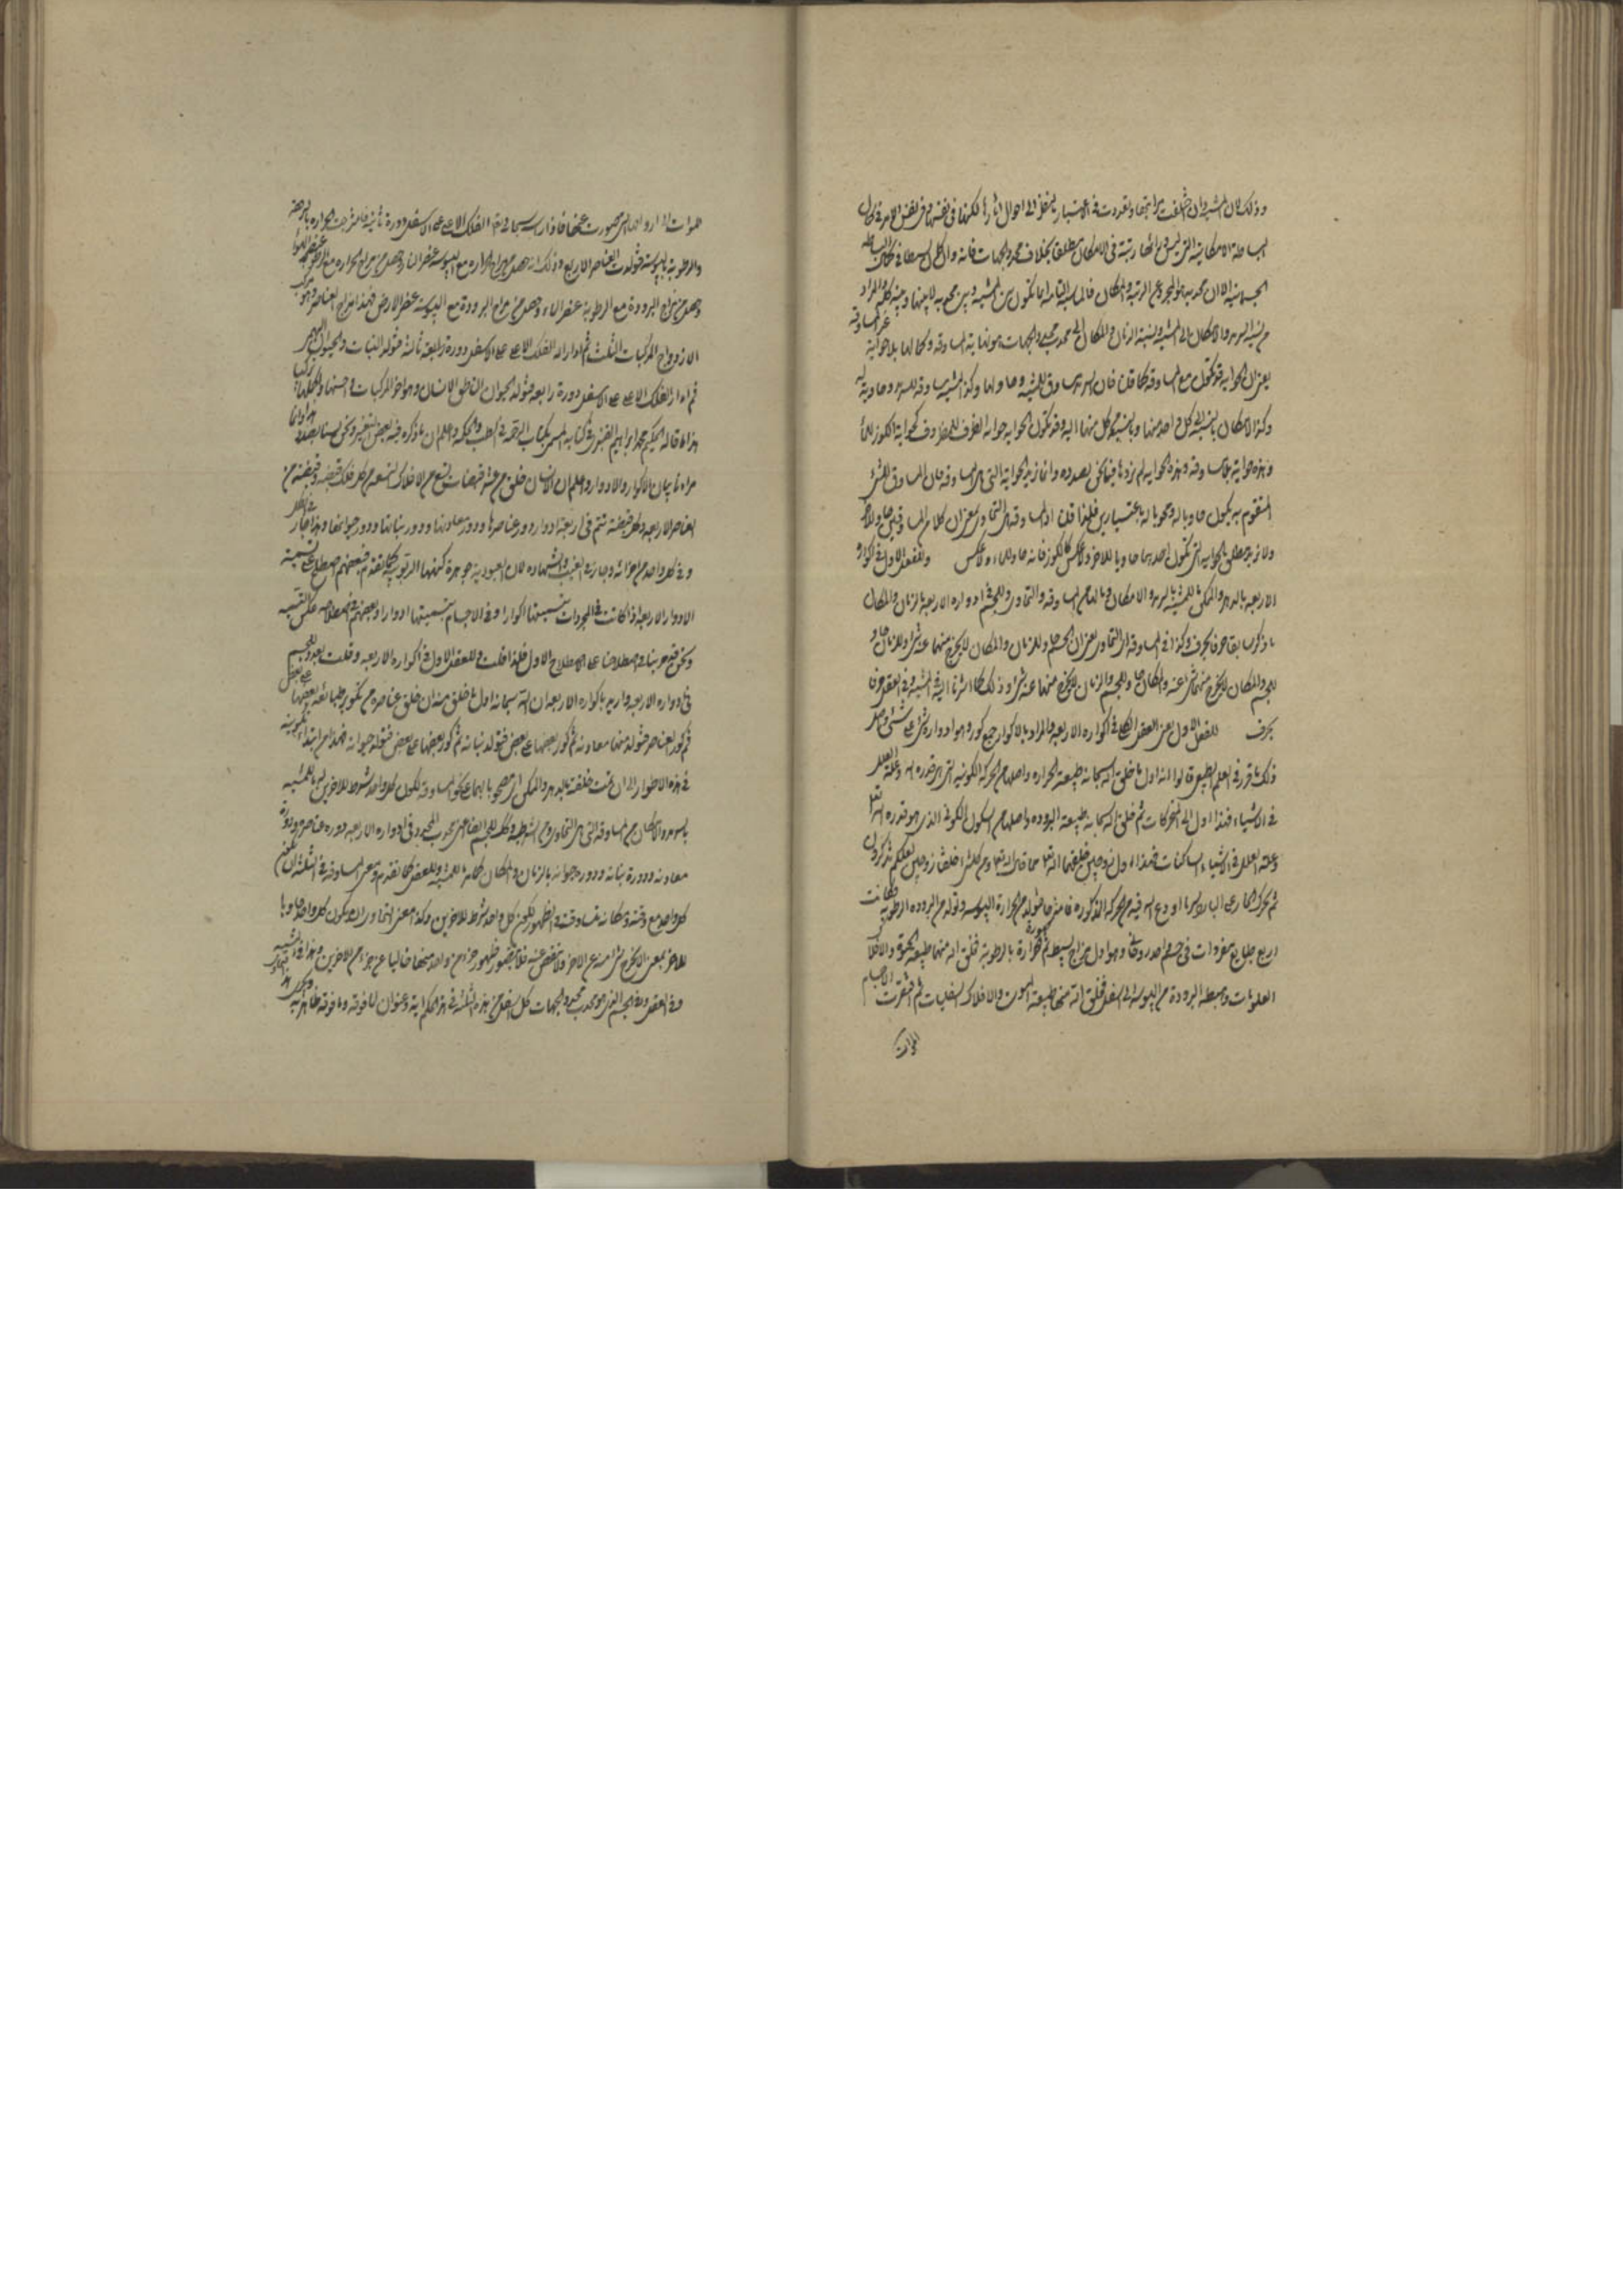 وذلك لان المشية وان اختلفت مراتبها وتعددت في الاعتبار بالنظر الى احوال اثارها لكنها في نفسها وفي نفس الامر في كمال
البساطة الامكانية التي ليس وراءها رتبة في الامكان مطلقا بخلاف محدد الجهات فانه وان كان بسيطا في
الجسمانية الا ان محدبه هو المجرد عن الرتبة والمكان فالمناسبة التامة انما تكون بين المشية وبين محدبه لا بينها وبينه كله والمراد
من نسبة السرمد والامكان الى المشية ونسبة الزمان والمكان الى محدب محدد الجهات هو نهاية المساوقة وكمالها بلا حواية
بمعنى ان الحواية قد تكون مع المساوقة كما قلنا فان السرمد مساوق للمشية وحاو لها وكذا المشية مساوقة للسرمد وحاوية له
وكذا الامكان بالنسبة الى كل واحد منها وبالنسبة كل منها اليه وقد تكون الحواية حواية الظرف للمظروف كحواية الكوز للماء
وهذه حواية بلا مساوقة وهذه الحواية لم نردها فيما نحن بصدده وانما نريد الحواية التي هي المساوقة فان المساوق للشئ
المتقوم به يكون حاويا له ومحويا له باعتبارين فلهذا قلنا ان المساوقة هي التساوي بمعنى ان كلا من المساوقين حاو للاخر
ولا نريد مطلق الحواية التي يكون احدهما حاويا للاخر ولا عكس كالكوز فانه حاو للماء ولا عكس وللعقل الاول في اكواره
الاربعة بالدهر والممكن ما للمشية بالسرمد والامكان وبالجملة من المساوقة والتساوي وللجسم في ادواره الاربعة بالزمان والمكان
ما ذكر سابقا حرفا بحرف وكذا في المساوقة اي التساوي بمعنى ان الجسم حاو للزمان والمكان لا يخرج منهما عنه شئ وللزمان حاو
للجسم والمكان لا يخرج منهما شئ عنه والمكان حاو للجسم والزمان لا يخرج منهما عنه شئ وذلك كما اشرنا اليه في المشية وفي العقل حرفا
بحرف للعقل الاول يعني العقل الكلي في اكواره الاربعة والمراد بالاكوار جمع كور وهو ادوارة شئ على شئ واصل
ذلك ما قرر في العلم الطبيعي قالوا انه اول ما خلق الله سبحانه طبيعة الحرارة واصلها من الحركة الكونية التي هي قدرة الله وعلة العلل
في الاشياء فهذا اول المتحركات ثم خلق الله سبحانه طبيعة البرودة واصلها من السكون الكوني الذي هو قدرة الله تعالى
وعلة العلل في الاشياء الساكنات فهذا اول زوجين خلقهما الله تعالى كما قال الله تعالى ومن كل شئ خلقنا زوجين لعلكم تذكرون
ثم تحرك الحار على البارد بسر ما اودع الله فيه من الحركة المذكورة فامتزجا فتولد من الحرارة اليبوسة وتولد من البرودة الرطوبة فكانت
اربع طبايع مفردات في جسم واحد روحاني وهو اول مزاج بسيط ثم صعدت الحرارة بالرطوبة فخلق الله منها طبيعة الحيوة والافلاك
العلويات وهبطت البرودة مع اليبوسة الى اسفل فخلق الله منها طبيعة الموت والافلاك السفليات ثم افتقرت الاجسام
الاموات
الموات الى ارواحها التي صعدت عنها فادار الله سبحانه الفلك الاعلى على الاسفل دورة ثانية فامتزجت الحرارة بالبرودة
والرطوبة باليبوسة فتولدت العناصر الاربع وذلك انه حصل من مزاج الحرارة مع اليبوسة عنصر النار وحصل من مزاج الحرارة مع الرطوبة عنصر الهواء
وحصل من مزاج البرودة مع الرطوبة عنصر الماء وحصل من مزاج البرودة مع اليبوسة عنصر الارض فهذا مزاج العناصر وهو مركب
الازدواج المركبات الثلث ثم ادار الله الفلك الاعلى على الاسفل دورة ثالثة فتولد النبات والحيوان البهيم
ثم ادار الفلك الاعلى على الاسفل دورة رابعة فتولد الحيوان الناطق الانسان وهو اخر المركبات واحسنها واكملها تركيبا
هذا ما قاله الحكيم محمد ابراهيم في كتابه المسمى بكتاب الرحمة في الطب والحكمة واعلم ان ما ذكره فيه بعض التغيير ونحن لسنا بصدده وانما
مرادنا بيان الاكوار والادوار واعلم ان الانسان خلق من عشر قبضات تسع من الافلاك التسعة من كل فلك قبضة وقبضة من
العناصر الاربعة وكل قبضة تتم في اربعة ادوار دور عناصرها ودور معادنها ودور نباتها ودور حيوانها وهذا جار في الكل
وفي كل واحد من اجزائه وجار في الغيب والشهادة لان العبودية جوهرة كنهها الربوبية كما تقدم فبعضهم اصطلح على تسمية
الادوار الاربعة اذا كانت في المجردات بتسميتها اكوارا وفي الاجسام بتسميتها ادوارا وبعضهم في اصطلاحه عكس التسمية
ونحن قد جرينا في اصطلاحنا على الاصطلاح الاول فلذا قلت وللعقل الاول في اكواره الاربعة وقلت بعد وللجسم
في ادواره الاربعة واريد باكواره الاربعة ان الله سبحانه اول ما خلق منه ان خلق عناصره من تكوير طبائعه بعضها على بعض
ثم كور العناصر فتولد منها معادنه ثم كور بعضها على بعض فتولد نباته ثم كور بعضها على بعض فتولد حيوانه فهذا من ابتداء تكوينه
في هذه الاطوار الى ان تمت خلقته بالدهر والممكن اي مصحوبا بهما على نحو المساوقة لكون كل واحد شرط للاخرين ما للمشية
بالسرمد والامكان من المساوقة التي هي التساوي ومن الشرطية وكذلك للجسم اعني محدب المحدد في ادواره الاربعة دورة عناصره ودورة
معادنه ودورة نباته ودورة حيوانه بالزمان والمكان كما مر للمشية وللعقل كما تقدم ومعنى المساوقة في الثلثة ان يكون
كل واحد مع وقته ومكانه متساوقة في الظهور لكون كل واحد شرط للاخرين وكذا معنى التساوي ان يكون كل واحد حاويا
للاخر بمعنى ان لا يخرج شئ منه عن الاخر ولا ينقص عنه فلا يتصور ظهور جزء من واحد منها خاليا عن جزء من الاخرين وهذا في المشية
وفي العقل وفي الجسم الذي هو محدب محدد الجهات كل اسفل من هذه الثلثة في هذا الحكم اية وعنوان لما فوقه وما فوقه ظاهر به